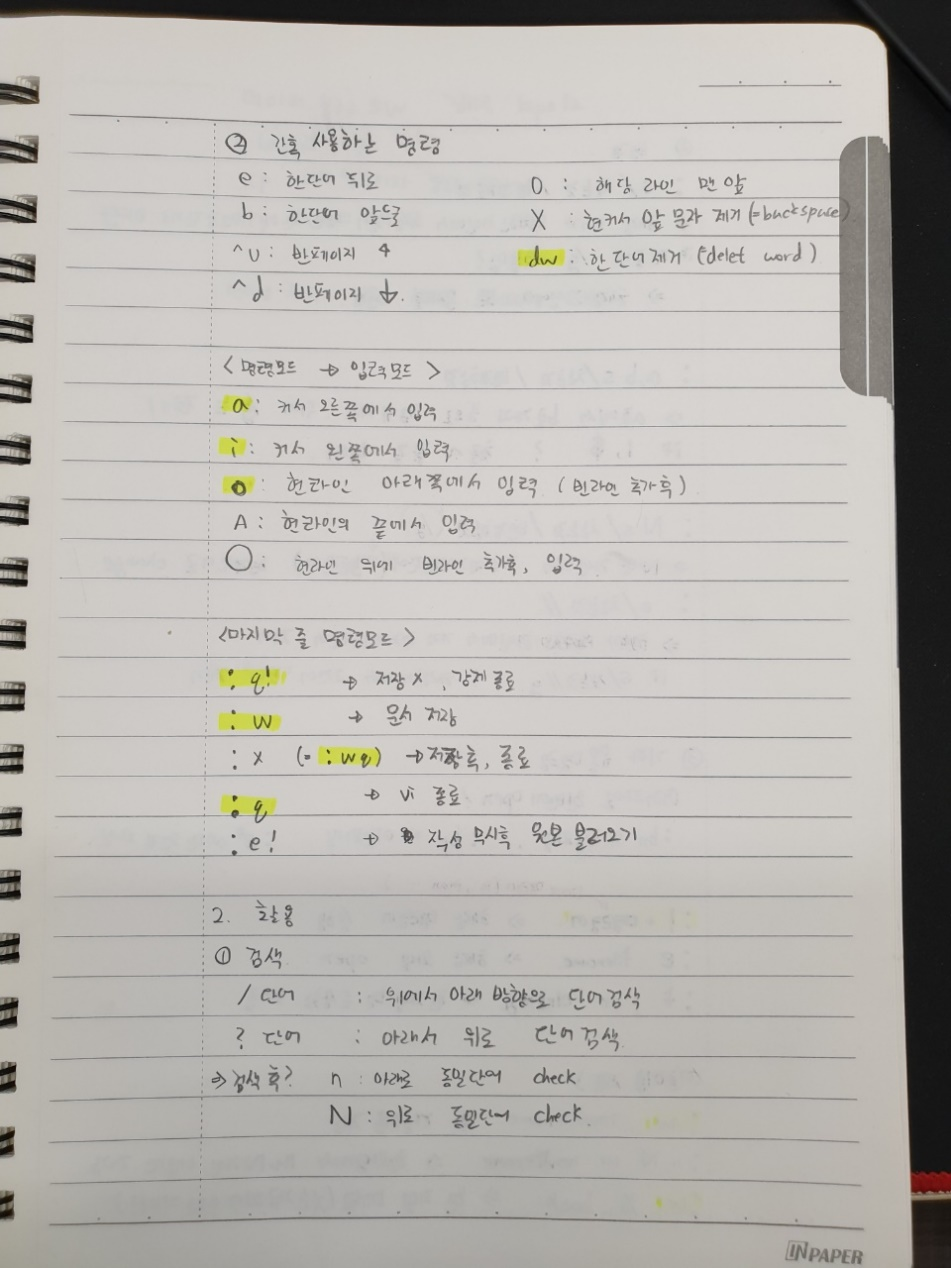 ② 간혹 사용하는 명령
e : 한단어 뒤로
O : 해당 라인 맨 앞
b : 한단어 앞으로
X : 현커서 앞 문자 제거 (=backspace)
^u : 반페이지 ↑
dw : 한 단어 제거 (delet word)
^d : 반페이지 ↓.
<명령모드 → 입력모드>
a : 커서 오른쪽에서 입력
i : 커서 왼쪽에서 입력
o : 현라인 아래쪽에서 입력 (빈라인 추가후)
A : 현라인의 끝에서 입력
O : 현라인 위에 빈라인 추가후, 입력
<마지막 줄 명령모드>
:q! → 저장 x, 강제종료
:w → 문서 저장
:x (= :wq) → 저장후, 종료
:q → vi 종료
:e! → 작성 무시후 원본 불러오기
2. 활용
① 검색
/ 단어 : 위에서 아래 방향으로 단어검색
? 단어 : 아래서 위로 단어검색
⇒ 검색 후? n : 아래로 동일단어 check
N : 위로 동일단어 check
INPAPER